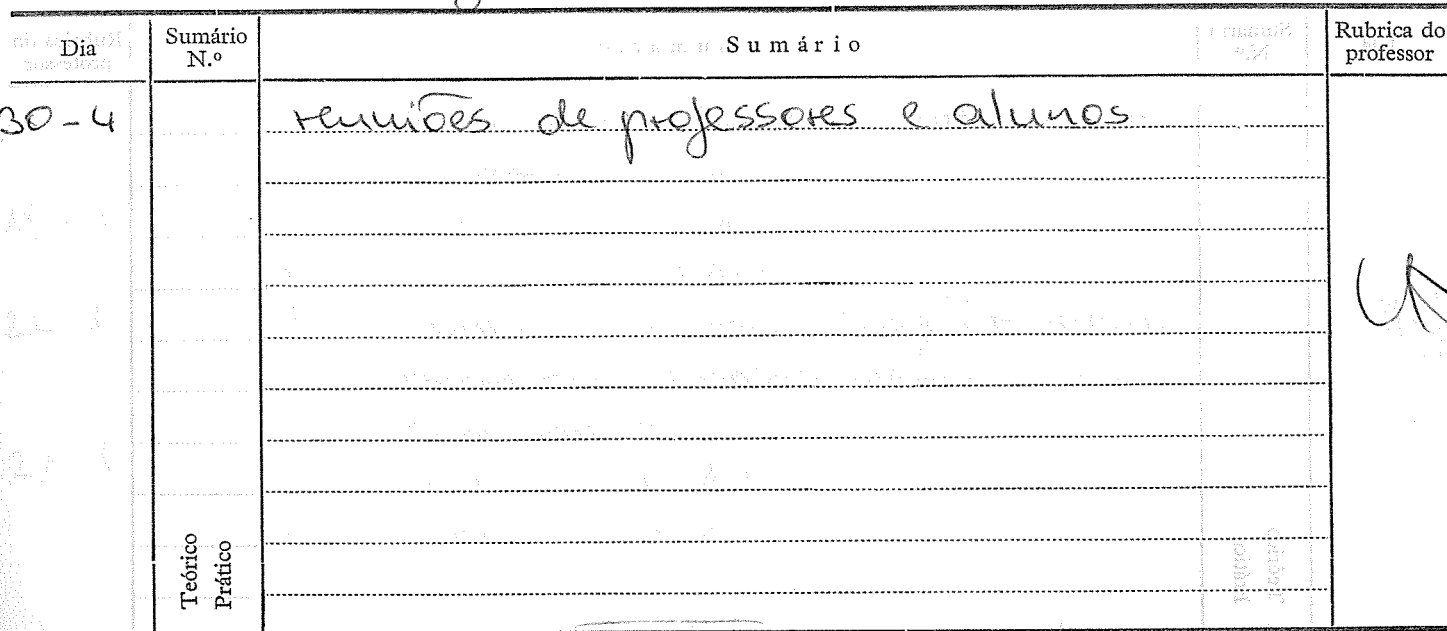 Dia Sumário N.º Sumário Rubrica do professor
30-4 reuniões de professores e alunos
Teórico
Prático